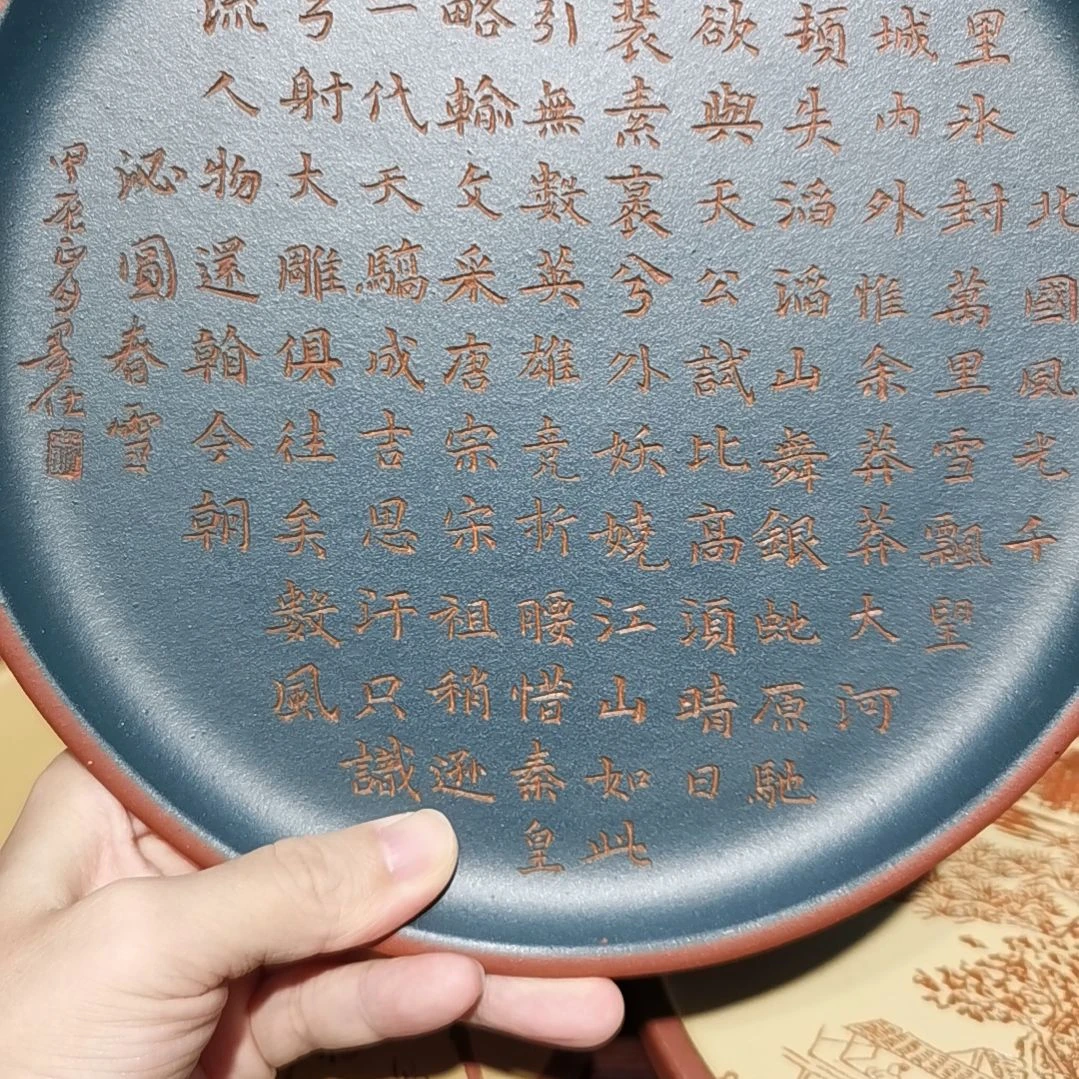 北國風光千
里冰封萬里雪飄望
城內外惟余莽莽大河
頓失滔滔山舞銀虵原馳
欲與天公試比高須晴日
裝素裹兮外妖嬈江山如此
引無數英雄竞折腰惜秦皇
略輸文采唐宗宋祖稍遜
一代天驕成吉思汗只識
弓射大雕俱往矣數風
流人物還翰今朝
泌圓春雪
甲辰正月